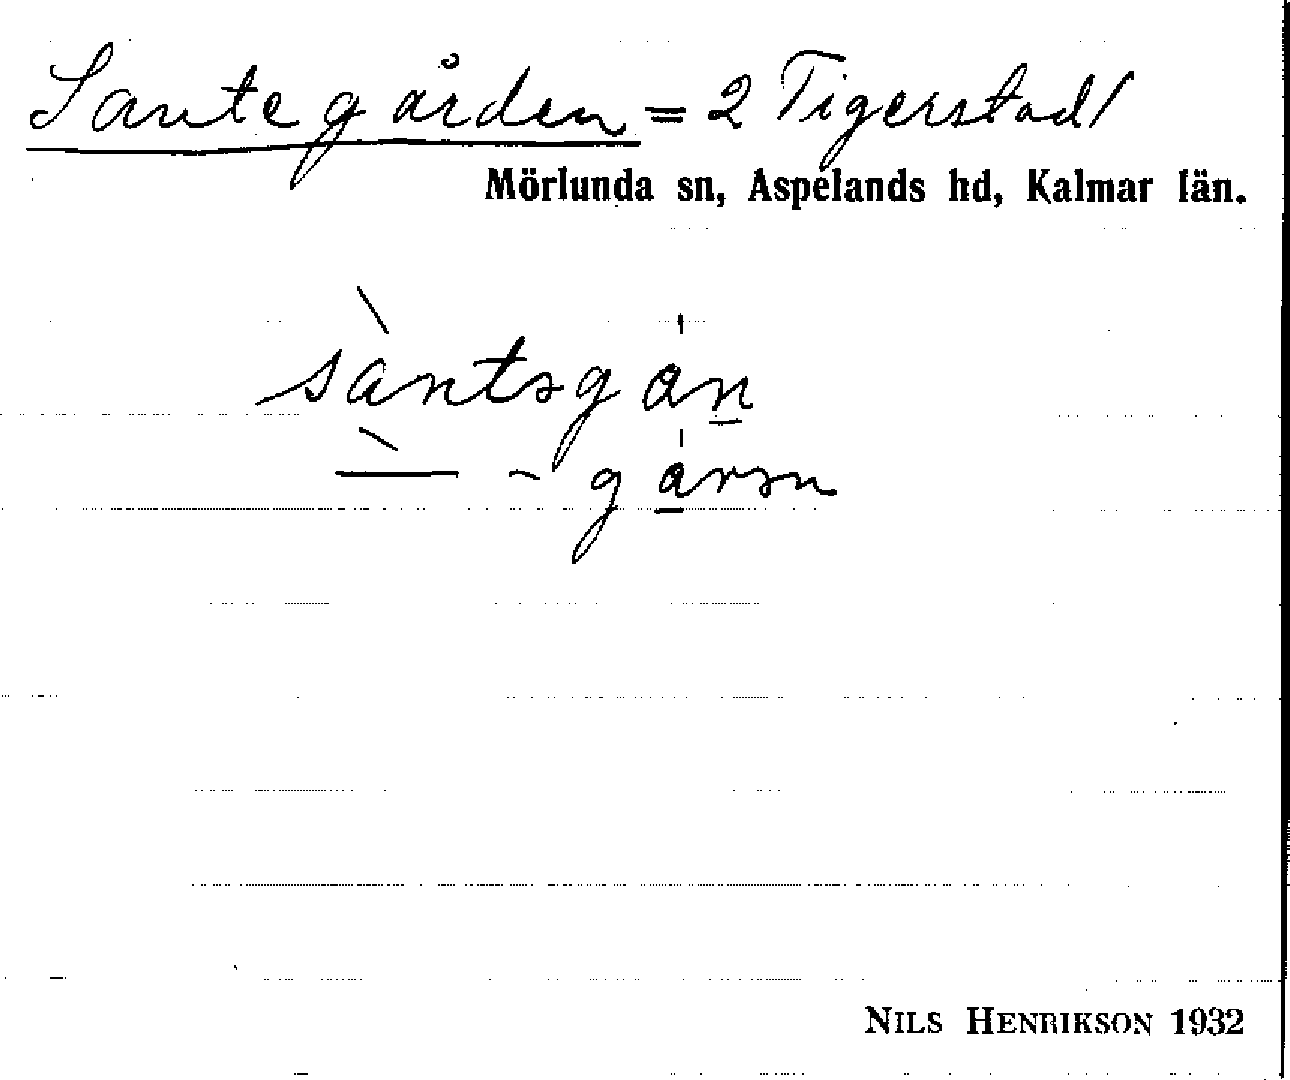 Santegården = 2 Tigerstad/
Mörlunda sn, Aspelands hd, Kalmar län.
NILS HENRIKSON 1932